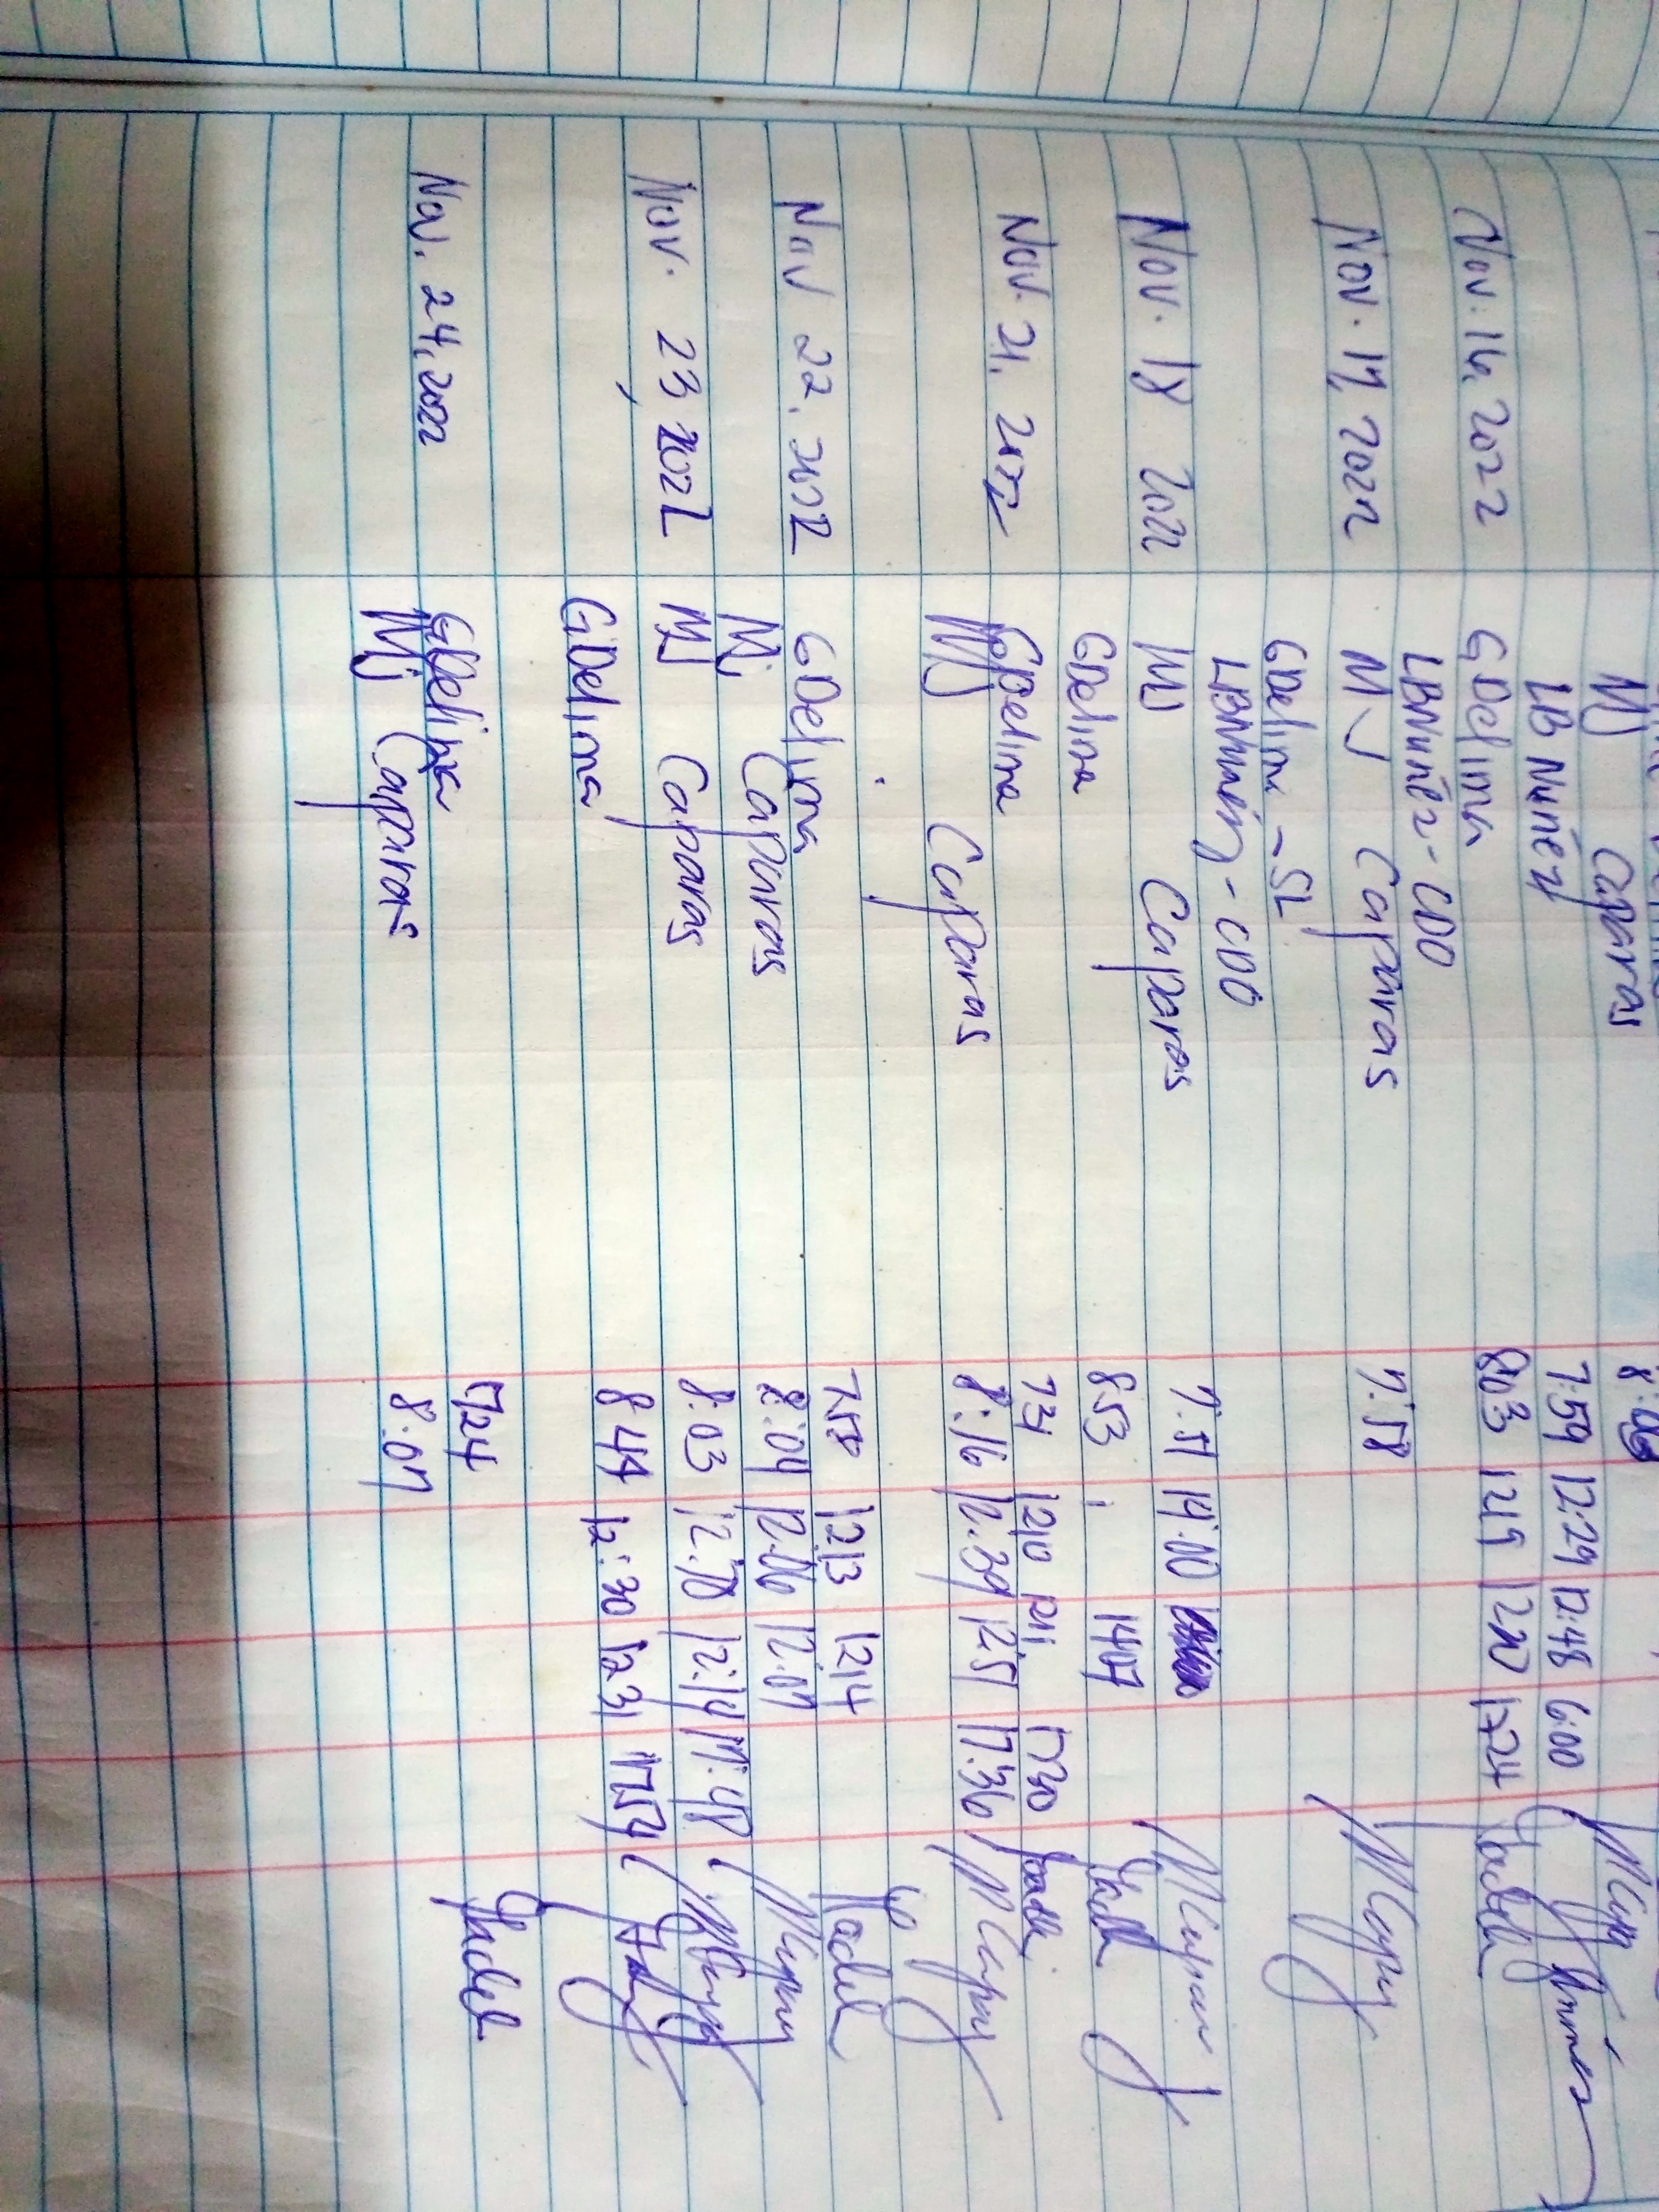 MJ Caparas
LB Nuñez 7:59 12:29 12:48 6:00
Nov. 16, 2022 GDelima 803 1219 1220 1724
LBNuñez - CDO
Nov. 17, 2022 MJ Caparas 7:58
GDelima - SL
LBNuñez - CDO
Nov. 18 2022 MJ Caparas 7:51 14:00
GDelima 853 1407
Nov. 21, 2022 GDelima 734 1210 1211 1730
MJ Caparas 8:16 12:39 12:51 17:36
Nov 22, 2022 GDelima 1213 1214
MJ Caparas 8:04 12:06 12:07
Nov. 23, 2022 MJ Caparas 8:03 12:14 17:48
GDelima 844 12:30 1231 1754
Nov. 24, 2022 GDelima 724
MJ Caparas 8:07